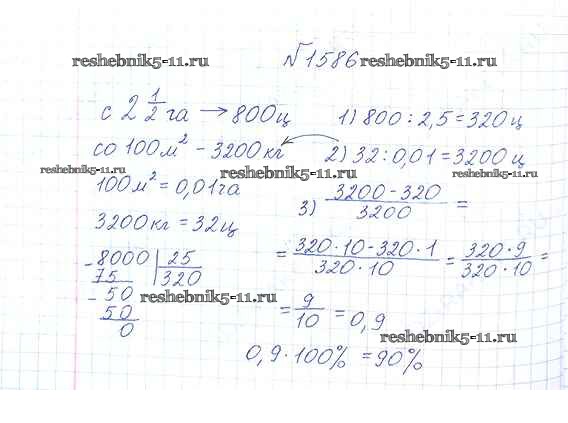 reshebnik5-11.ru №1586 reshebnik5-11.ru
с 2 1/2 га → 800ц
1) 800 : 2,5 = 320 ц
со 100 м² - 3200 кг
2) 32 : 0,01 = 3200 ц
reshebnik5-11.ru reshebnik5-11.ru
100 м² = 0,01 га
3) (3200 - 320)/3200 =
3200 кг = 32 ц
= (320 · 10 - 320 · 1)/(320 · 10) = (320 · 9)/(320 · 10) =
- 8000 | 25
75 | 320
- 50
reshebnik5-11.ru
50
0
= 9/10 = 0,9
reshebnik5-11.ru
0,9 · 100% = 90%